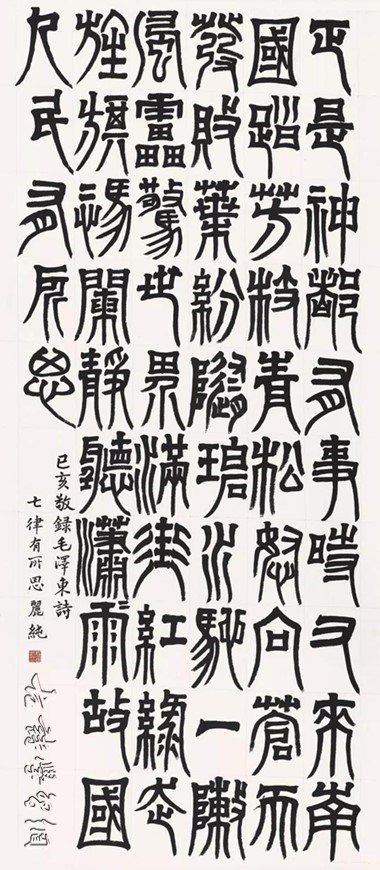 正是神都有事時又來南
國踏芳枝青松怒向蒼天
發敗葉紛隨碧水馳一陣
風雷驚世界滿街紅綠走
旌旗馮闌靜聽瀟雨故國
人民有所思
己亥敬録毛澤東詩
七律有所思麗純